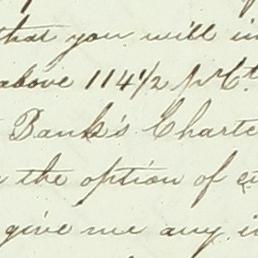 that you will in
above 114 1/2 pr Ct.
Bank's Charte
the option of
give me any i